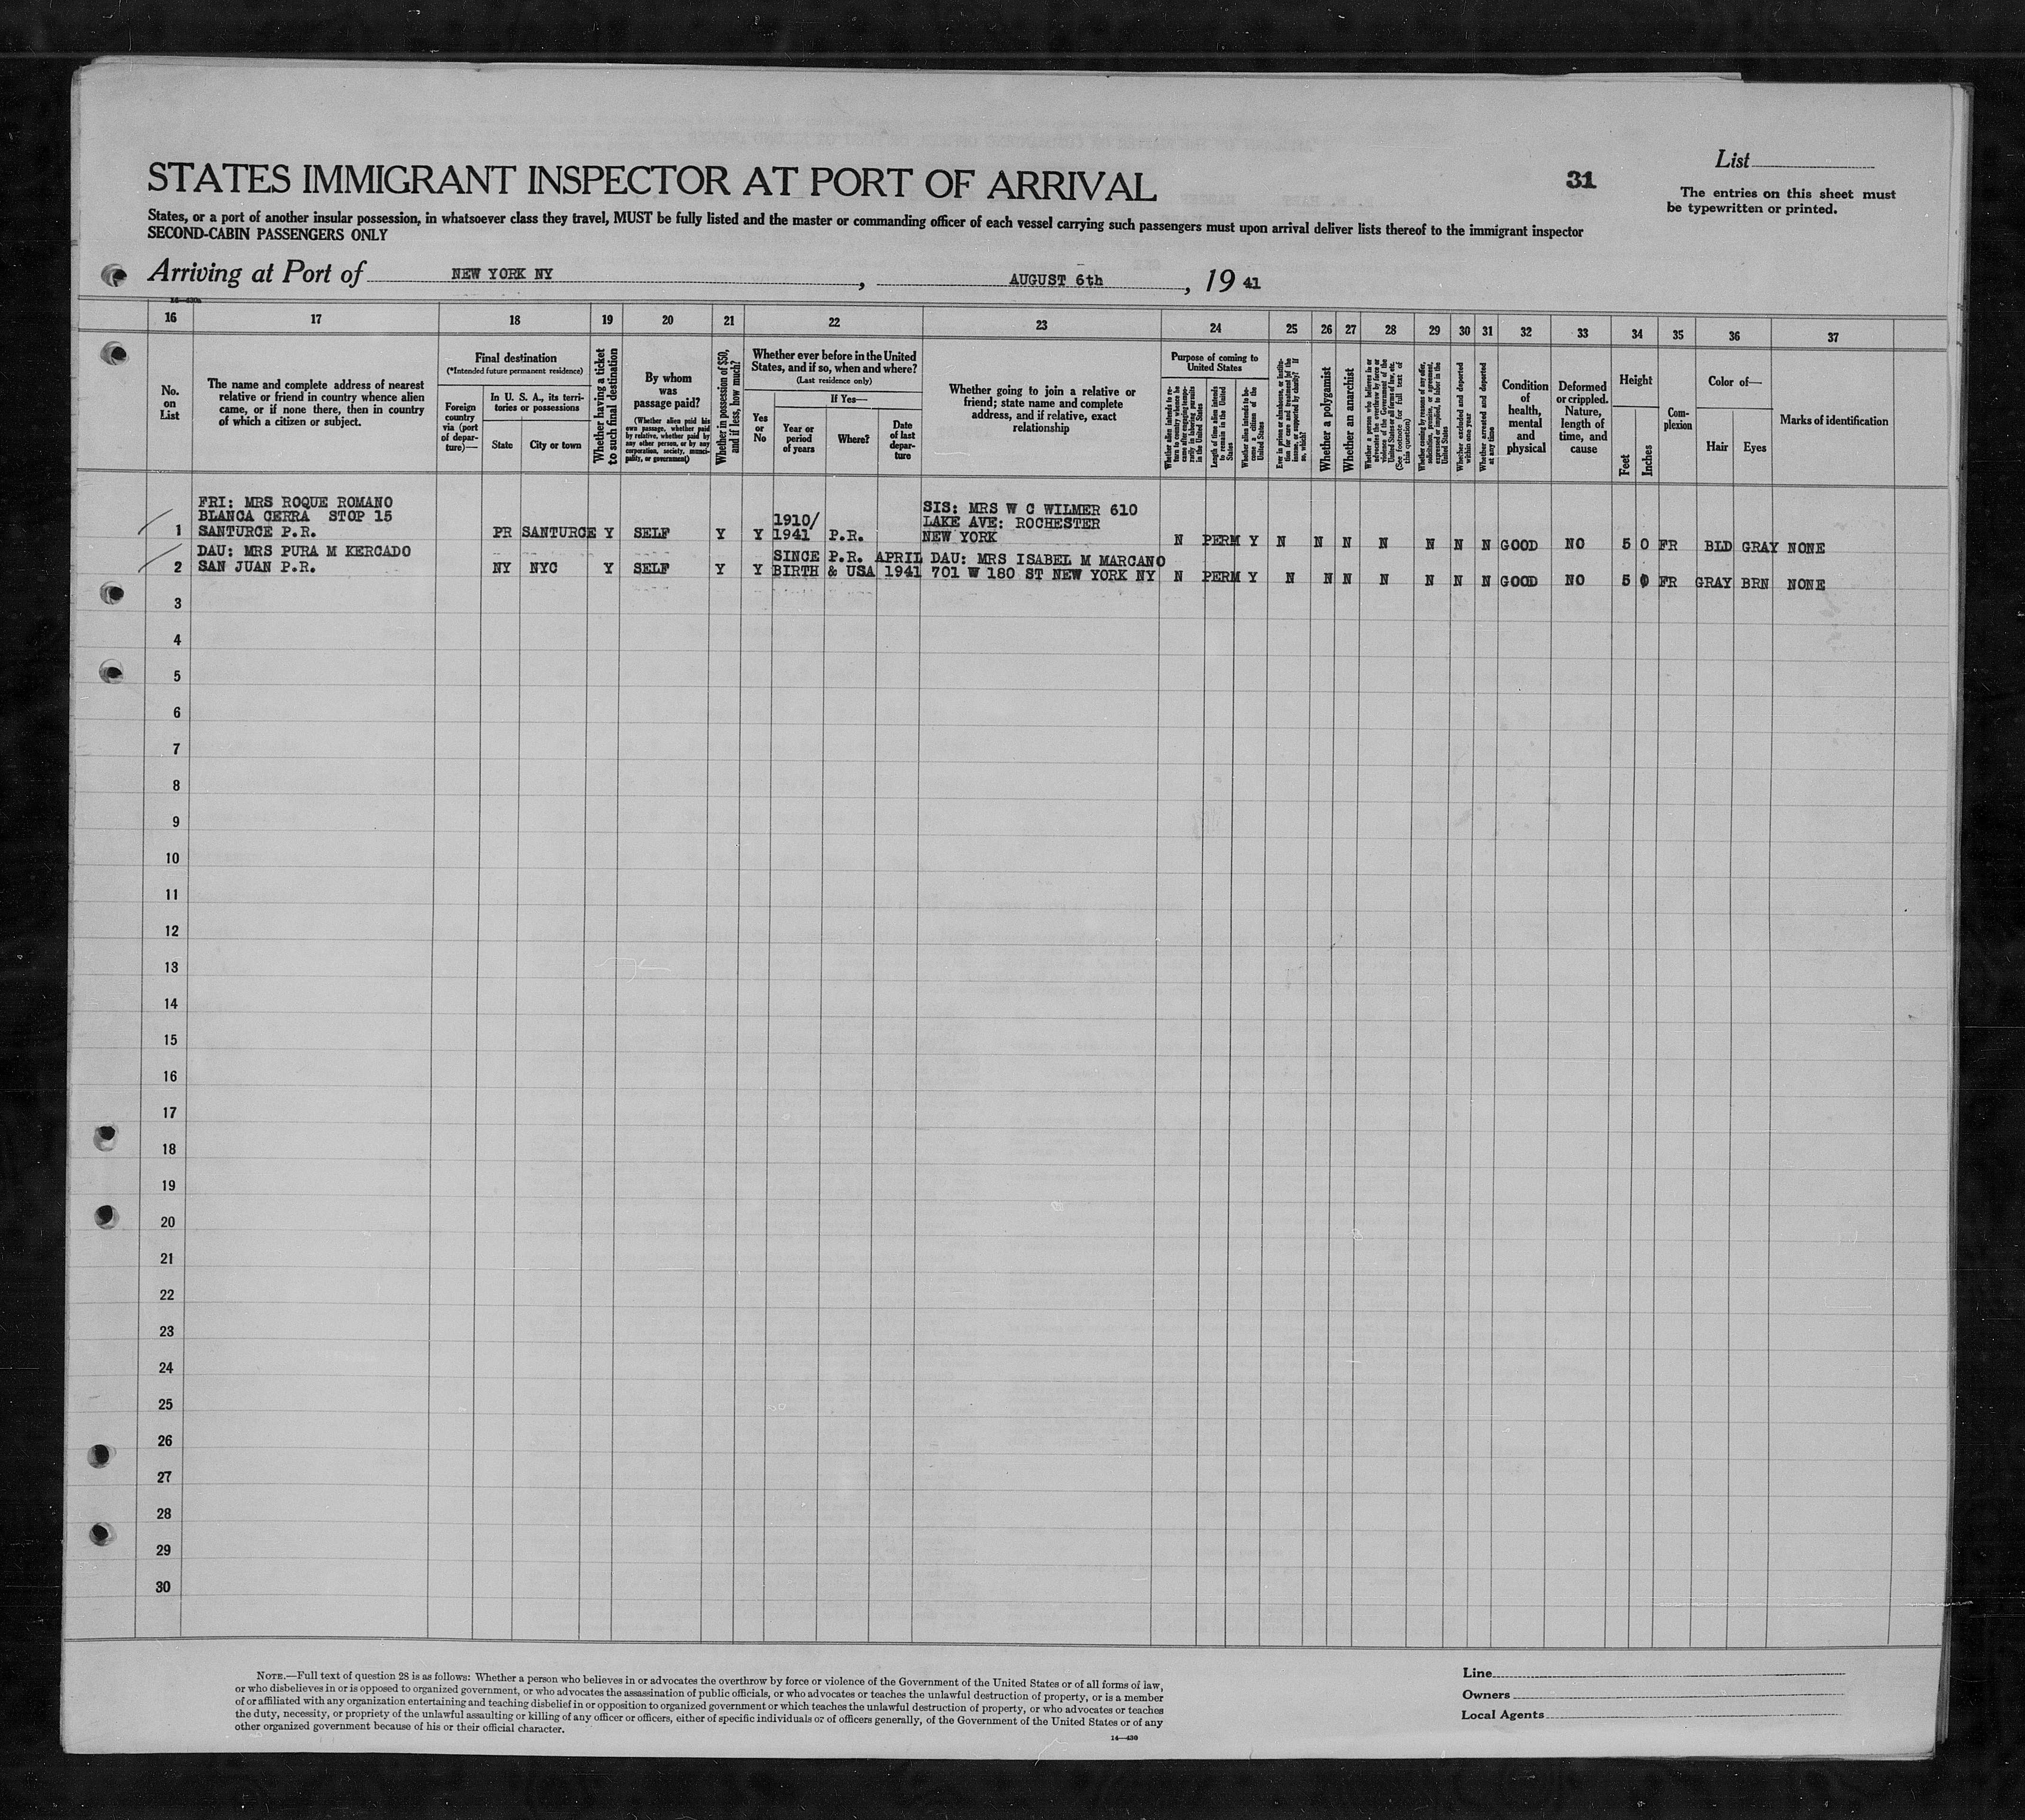 List
STATES IMMIGRANT INSPECTOR AT PORT OF ARRIVAL
31
The entries on this sheet must
be typewritten or printed.
States, or a port of another insular possession, in whatsoever class they travel, MUST be fully listed and the master or commanding officer of each vessel carrying such passengers must upon arrival deliver lists thereof to the immigrant inspector
SECOND-CABIN PASSENGERS ONLY
Arriving at Port of NEW YORK NY, AUGUST 6th, 19 41
16 17 18 19 20 21 22 23 24 25 26 27 28 29 30 31 32 33 34 35 36 37
No.
on
List
The name and complete address of nearest
relative or friend in country whence alien
came, or if none there, then in country
of which a citizen or subject.
Final destination
(*Intended future permanent residence)
Foreign
country
via (port
of depar-
ture)—
In U. S. A., its terri-
tories or possessions
State
City or town
Whether having a ticket
to such final destination
By whom
was
passage paid?
(Whether alien paid his
own passage, whether paid
by relative, whether paid by
any other person, or by any
corporation, society, munici-
pality, or government)
Whether in possession of $50,
and if less, how much?
Whether ever before in the United
States, and if so, when and where?
(Last residence only)
Yes
or
No
If Yes—
Year or
period
of years
Where?
Date
of last
depar-
ture
Whether going to join a relative or
friend; state name and complete
address, and if relative, exact
relationship
Purpose of coming to
United States
Whether alien intends to re-
turn to country whence he
came after engaging tempo-
rarily in laboring pursuits
in the United States
Length of time alien intends
to remain in the United
States
Whether alien intends to be-
come a citizen of the
United States
Ever in prison or almshouse, or institu-
tion for care and treatment of the
insane, or supported by charity? If
so, which?
Whether a polygamist
Whether an anarchist
Whether a person who believes in or
advocates the overthrow by force or
violence of the Government of the
United States or all forms of law, etc.
(See footnote for full text of
this question)
Whether coming by reasons of any offer,
solicitation, promise, or agreement,
expressed or implied, to labor in the
United States
Whether excluded and deported
within one year
Whether arrested and deported
at any time
Condition
of
health,
mental
and
physical
Deformed
or crippled.
Nature,
length of
time, and
cause
Height
Feet
Inches
Com-
plexion
Color of—
Hair
Eyes
Marks of identification
FRI: MRS ROQUE ROMANO
BLANCA CERRA STOP 15
1 SANTURCE P.R. PR SANTURCE Y SELF Y Y 1910/
1941 P.R.
SIS: MRS W C WILMER 610
LAKE AVE: ROCHESTER
NEW YORK N PERM Y N N N N N N N GOOD NO 5 0 FR BLD GRAY NONE
DAU: MRS PURA M KERCADO
2 SAN JUAN P.R. NY NYC Y SELF Y Y SINCE P.R. APRIL
BIRTH & USA 1941
DAU: MRS ISABEL M MARCANO
701 W 180 ST NEW YORK NY N PERM Y N N N N N N N GOOD NO 5 0 FR GRAY BRN NONE
3
4
5
6
7
8
9
10
11
12
13
14
15
16
17
18
19
20
21
22
23
24
25
26
27
28
29
30
NOTE.—Full text of question 28 is as follows: Whether a person who believes in or advocates the overthrow by force or violence of the Government of the United States or of all forms of law,
or who disbelieves in or is opposed to organized government, or who advocates the assassination of public officials, or who advocates or teaches the unlawful destruction of property, or is a member
of or affiliated with any organization entertaining and teaching disbelief in or opposition to organized government or which teaches the unlawful destruction of property, or who advocates or teaches
the duty, necessity, or propriety of the unlawful assaulting or killing of any officer or officers, either of specific individuals or of officers generally, of the Government of the United States or of any
other organized government because of his or their official character.
14—430
Line
Owners
Local Agents